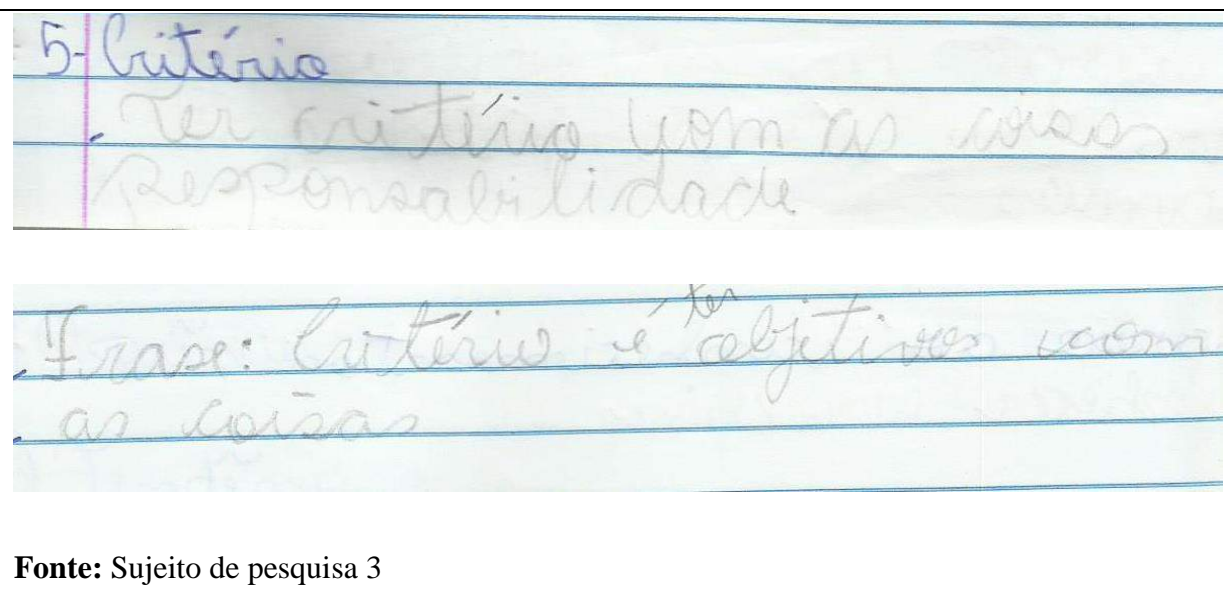 5- Critério
Ter critério com as coisas
Responsabilidade
ter
Frase: Critério é objetivos com
as coisas
Fonte: Sujeito de pesquisa 3